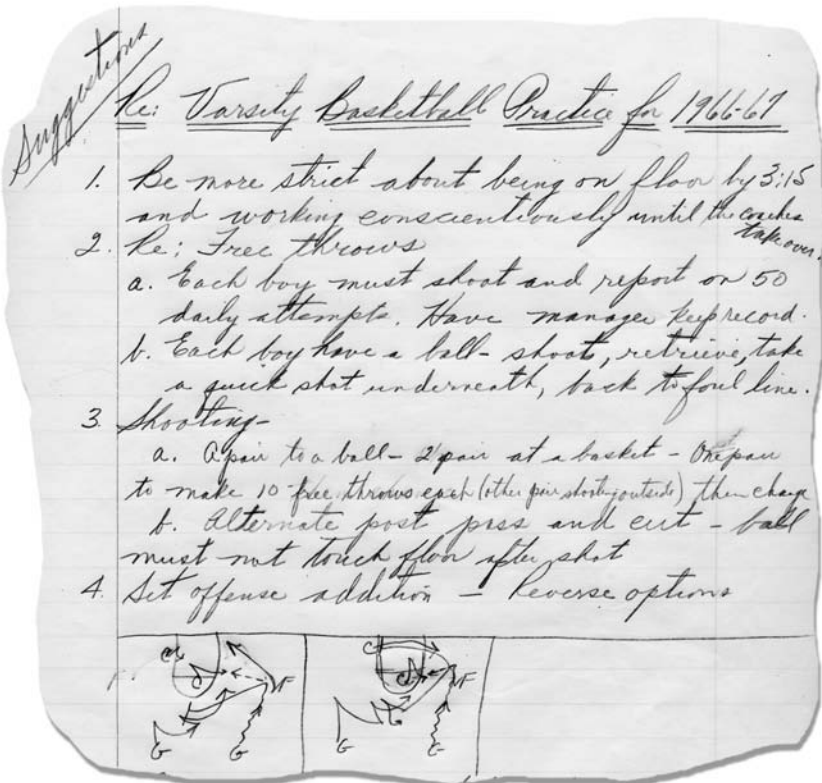 Suggestions
Re: Varsity Basketball Practice for 1966-67
1. Be more strict about being on floor by 3:15
and working conscientiously until the coaches
take over.
2. Re: Free throws
a. Each boy must shoot and report on 50
daily attempts. Have manager keep record.
b. Each boy have a ball - shoot, retrieve, take
a quick shot underneath, back to foul line.
3. Shooting-
a. A pair to a ball - 2 pair at a basket - One pair
to make 10 free throws each (other pair shooting outside) then change
b. Alternate post pass and cut - ball
must not touch floor after shot
4. Set offense addition - Reverse options
C F
G G
C F
G G